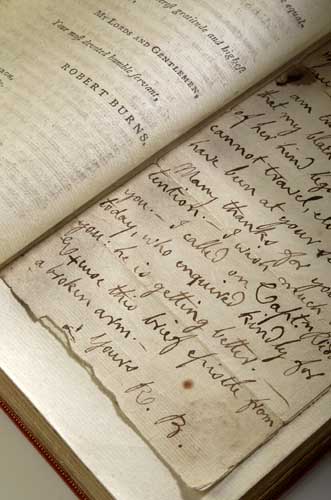 gratitude and highest
equal,
MY LORDS AND GENTLEMEN,
Your most devoted humble servant,
ROBERT BURNS.
am
that my
of her kind
cannot travel,
have been at your
Many thanks for you
tention. — I wish much
you. — I called on Captn
today, who enquired kindly for
you: he is getting better. —
Excuse this brief epistle from
a broken arm. —
Yours R. B.